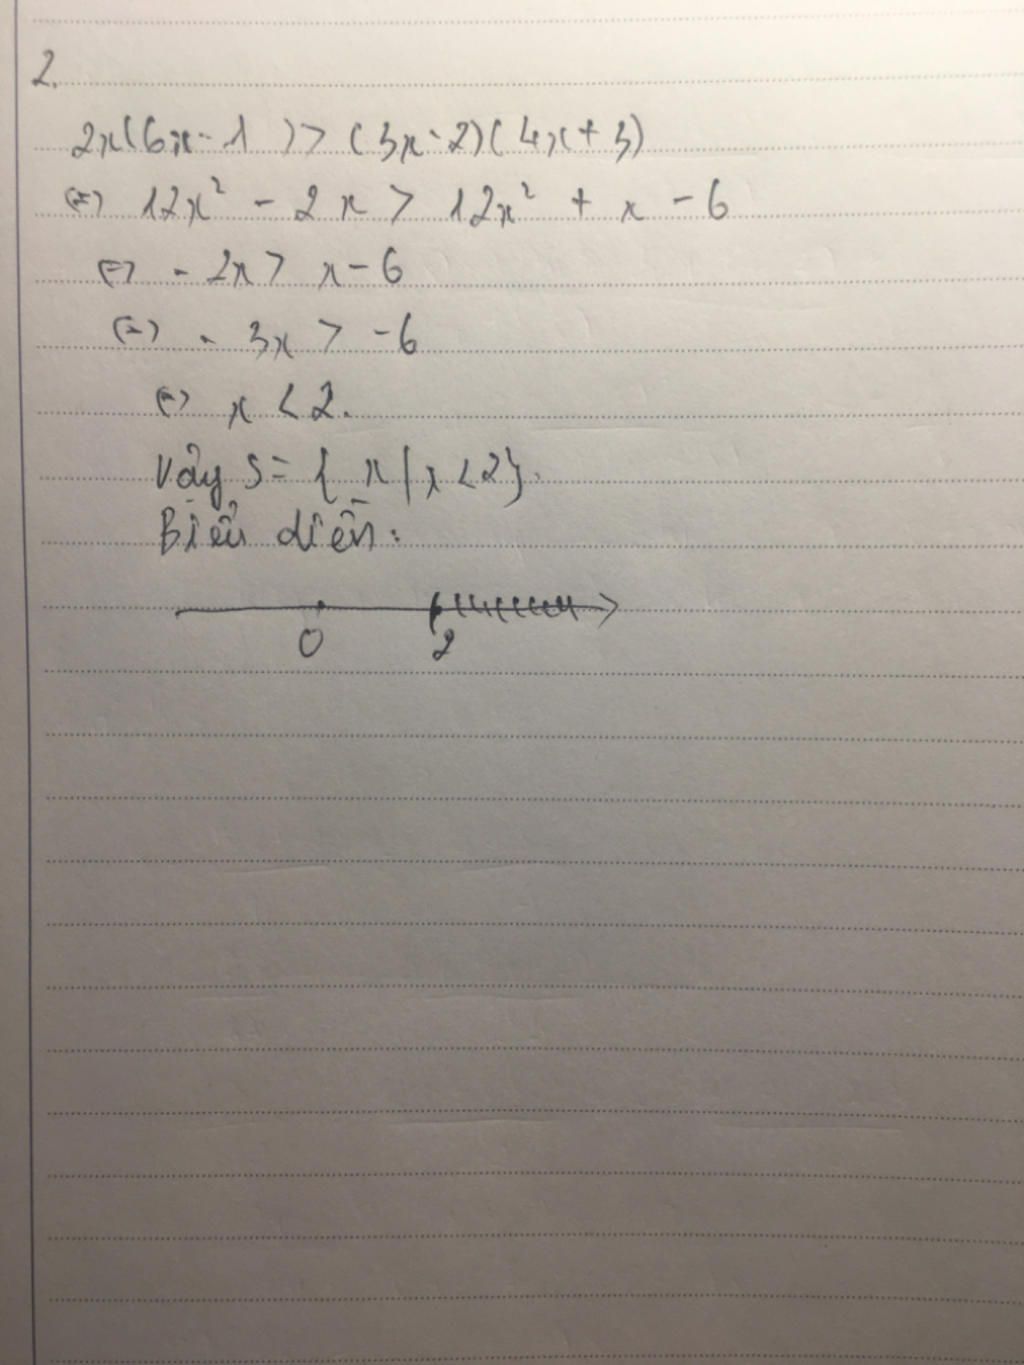 2.
2x(6x-1)>(3x-2)(4x+3)
<=> 12x² - 2x > 12x² + x - 6
<=> - 2x > x - 6
<=> - 3x > -6
<=> x < 2.
Vậy S = { x | x < 2}.
Biểu diễn:
0 2